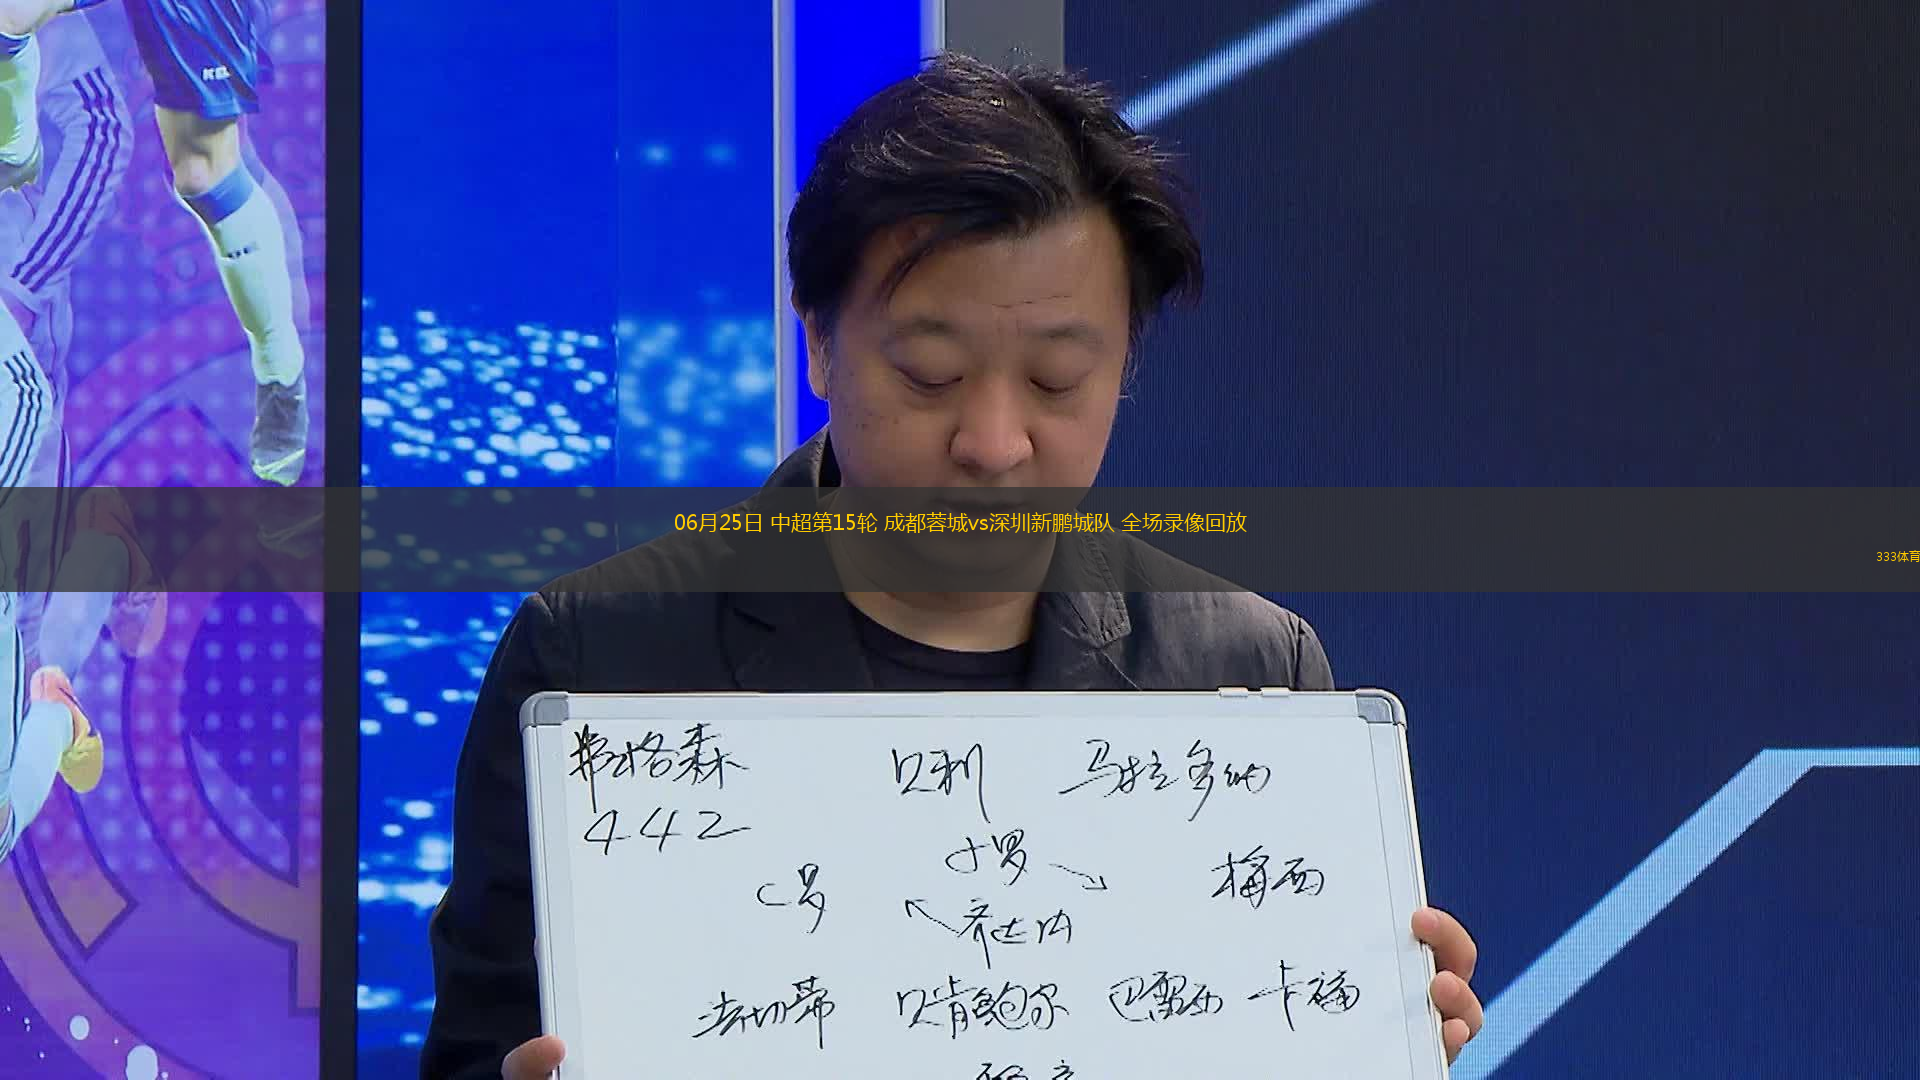 KELME
06月25日 中超第15轮 成都蓉城vs深圳新鹏城队 全场录像回放
333体育
弗格森 贝利 马拉多纳
442
小罗
C罗 梅西
齐达内
法切蒂 贝肯鲍尔 巴雷西 卡福